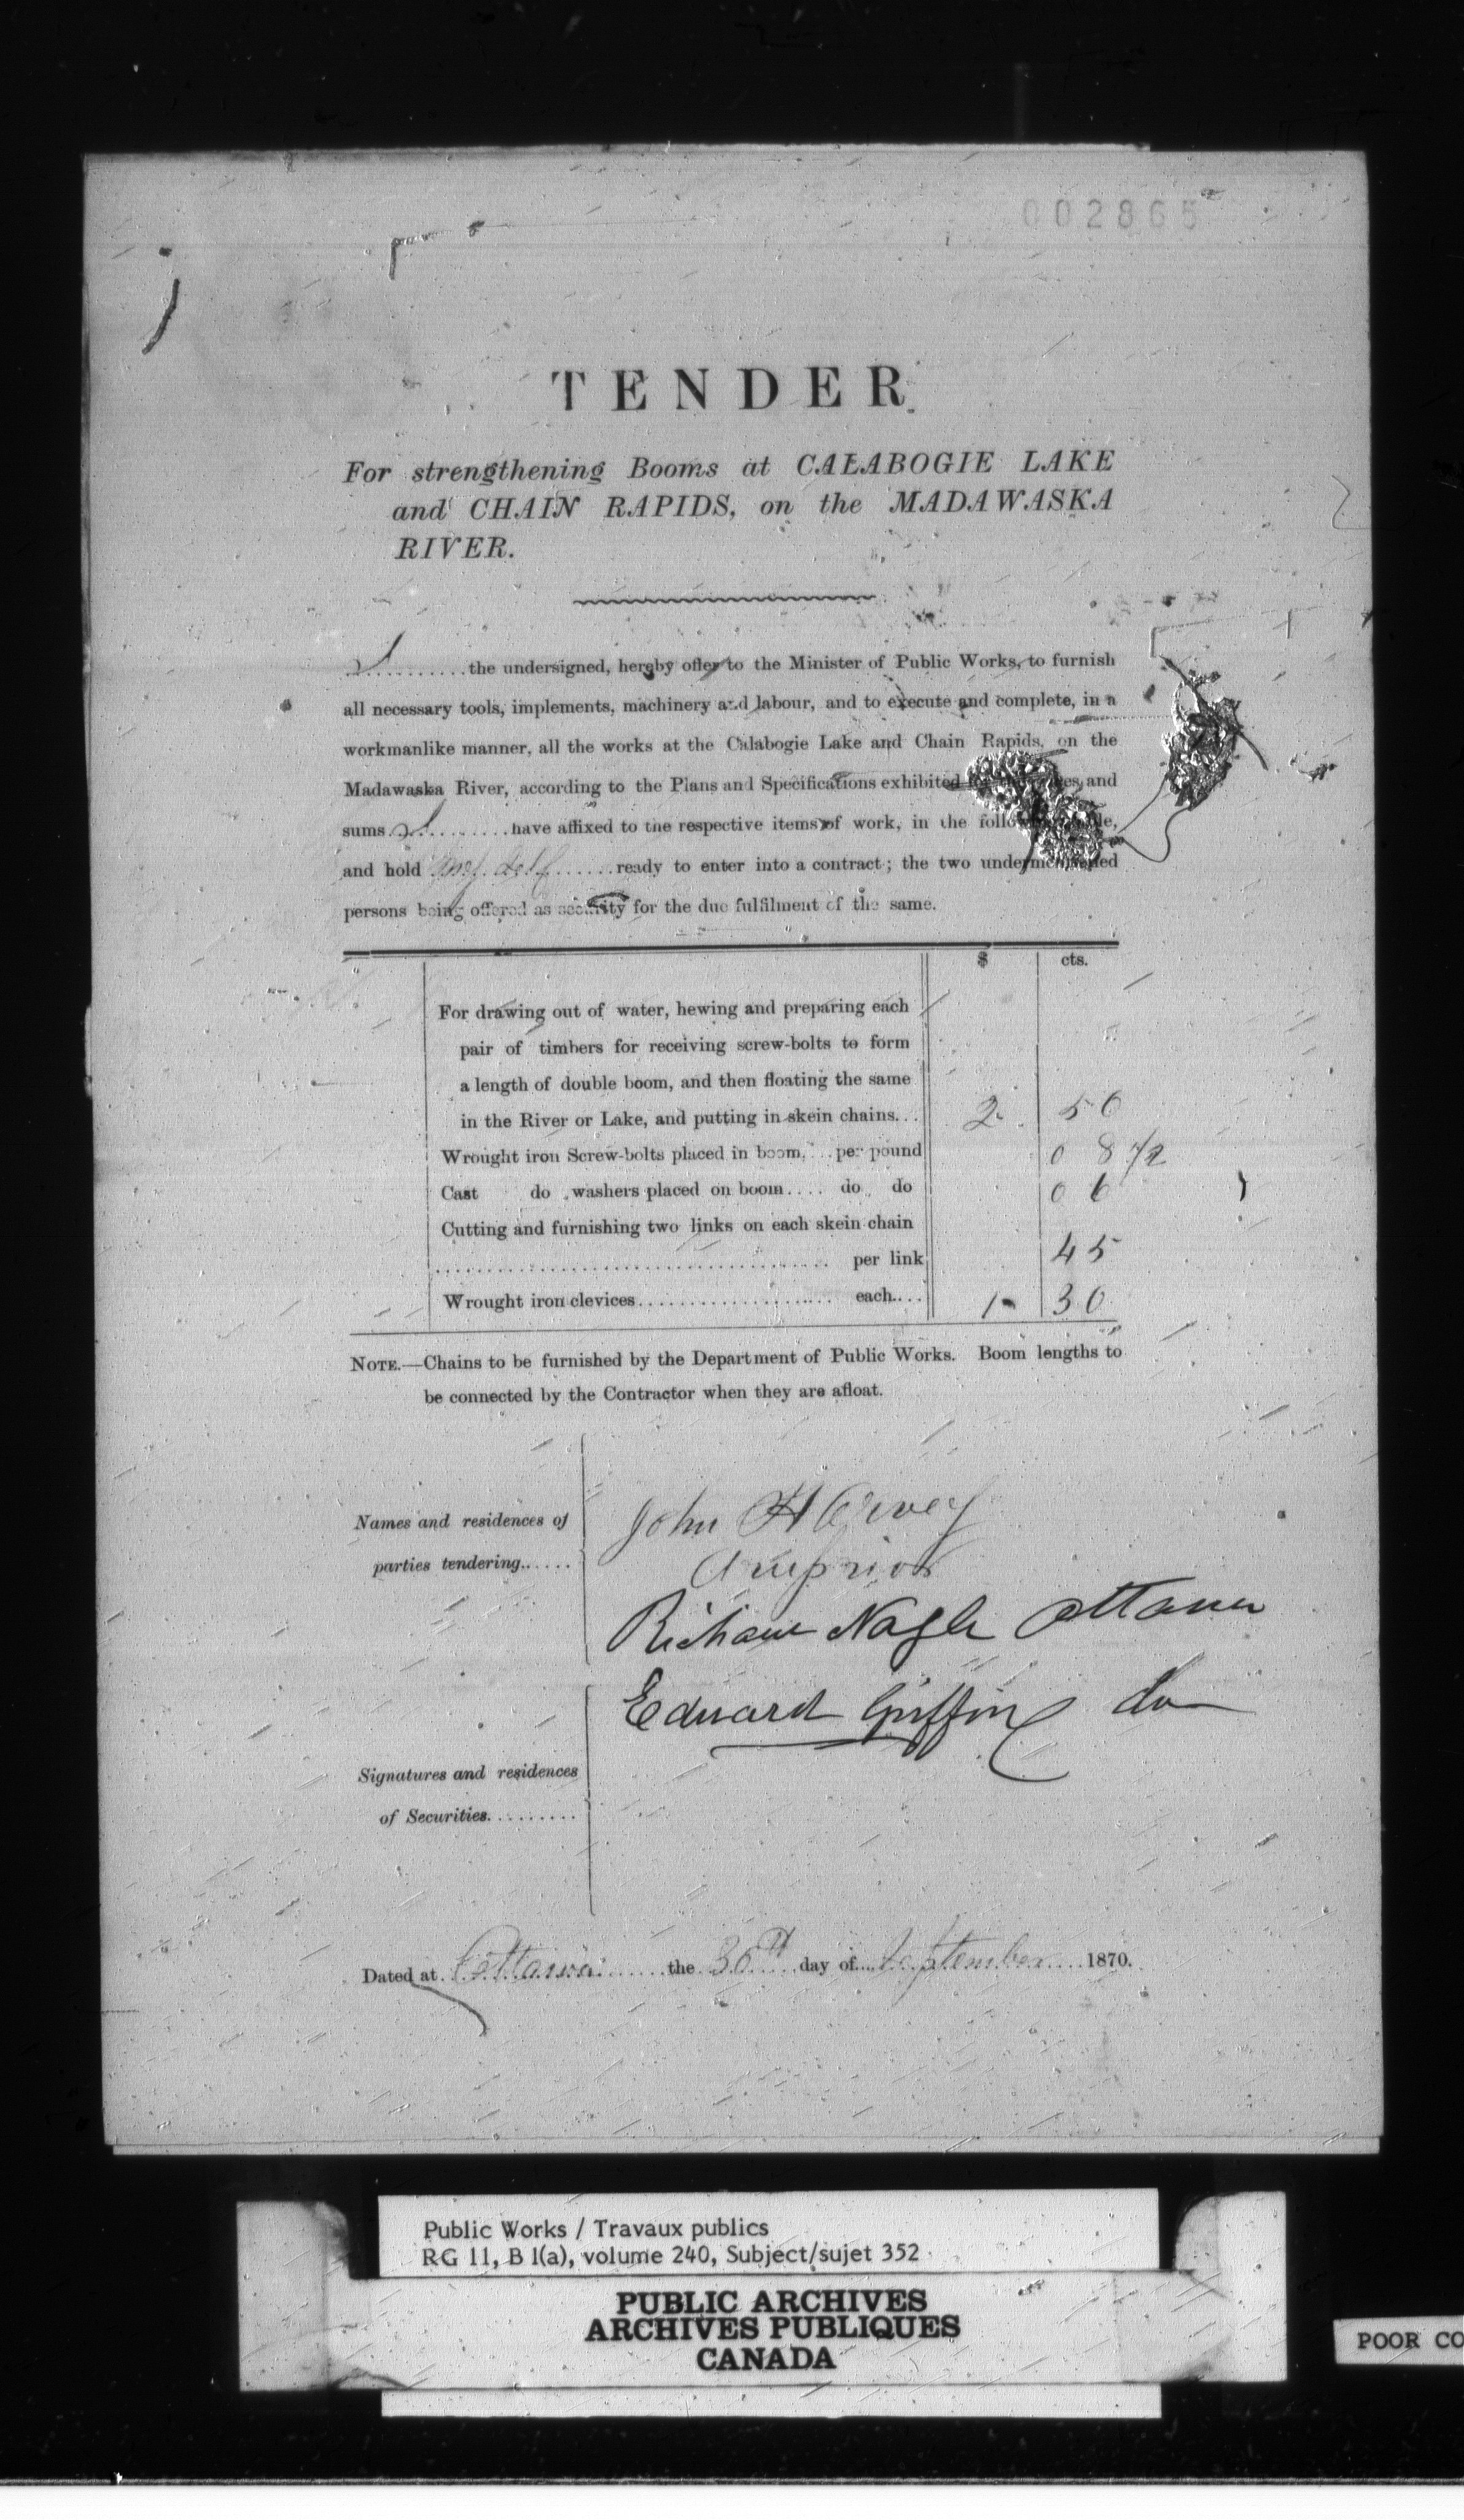 002865
TENDER
For strengthening Booms at CALABOGIE LAKE
and CHAIN RAPIDS, on the MADAWASKA
RIVER.
I..........the undersigned, hereby offer to the Minister of Public Works, to furnish
all necessary tools, implements, machinery and labour, and to execute and complete, in a
workmanlike manner, all the works at the Calabogie Lake and Chain Rapids, on the
Madawaska River, according to the Plans and Specifications exhibited for and
sums I..........have affixed to the respective items of work, in the
and hold my self......ready to enter into a contract; the two undermentioned
persons being offered as security for the due fulfilment of the same.
$ cts.
For drawing out of water, hewing and preparing each
pair of timbers for receiving screw-bolts to form
a length of double boom, and then floating the same
in the River or Lake, and putting in skein chains... 2. 50
Wrought iron Screw-bolts placed in boom,...per pound 0 8 1/2
Cast do washers placed on boom.... do do 0 6
Cutting and furnishing two links on each skein chain
.................................... per link 45
Wrought iron clevices..................... each.... 1 30
NOTE.—Chains to be furnished by the Department of Public Works. Boom lengths to
be connected by the Contractor when they are afloat.
Names and residences of
parties tendering......
John Harvey
Arnprior
Richard Nagle Ottawa
Edward Griffin do
Signatures and residences
of Securities.........
Dated at Ottawa the 30th day of September 1870.
Public Works / Travaux publics
RG 11, B 1(a), volume 240, Subject/sujet 352
PUBLIC ARCHIVES
ARCHIVES PUBLIQUES
CANADA
POOR CO